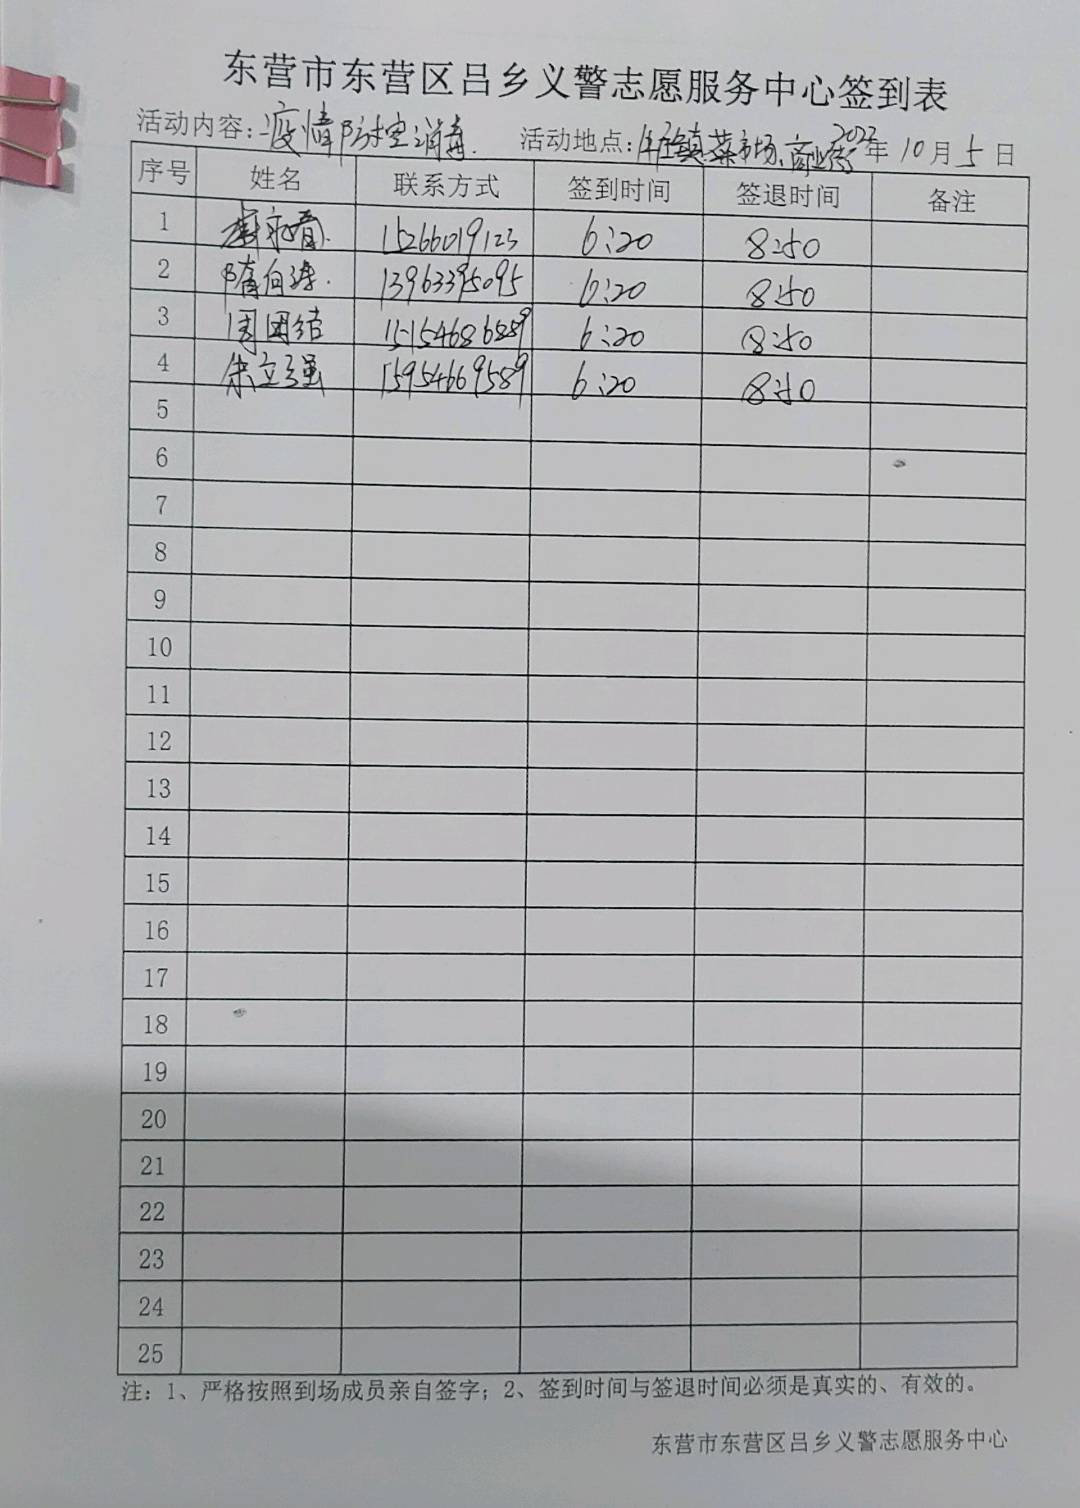 东营市东营区吕乡义警志愿服务中心签到表
活动内容: 疫情防控消毒. 活动地点: 镇菜市场、商业街 2022年10月5日
序号 姓名 联系方式 签到时间 签退时间 备注
1 15266019123 6:20 8:50
2 13963395095 6:20 8:50
3 周团结 15154686889 6:20 8:50
4 朱立强 15954669589 6:20 8:50
5
6
7
8
9
10
11
12
13
14
15
16
17
18
19
20
21
22
23
24
25
注：1、严格按照到场成员亲自签字；2、签到时间与签退时间必须是真实的、有效的。
东营市东营区吕乡义警志愿服务中心